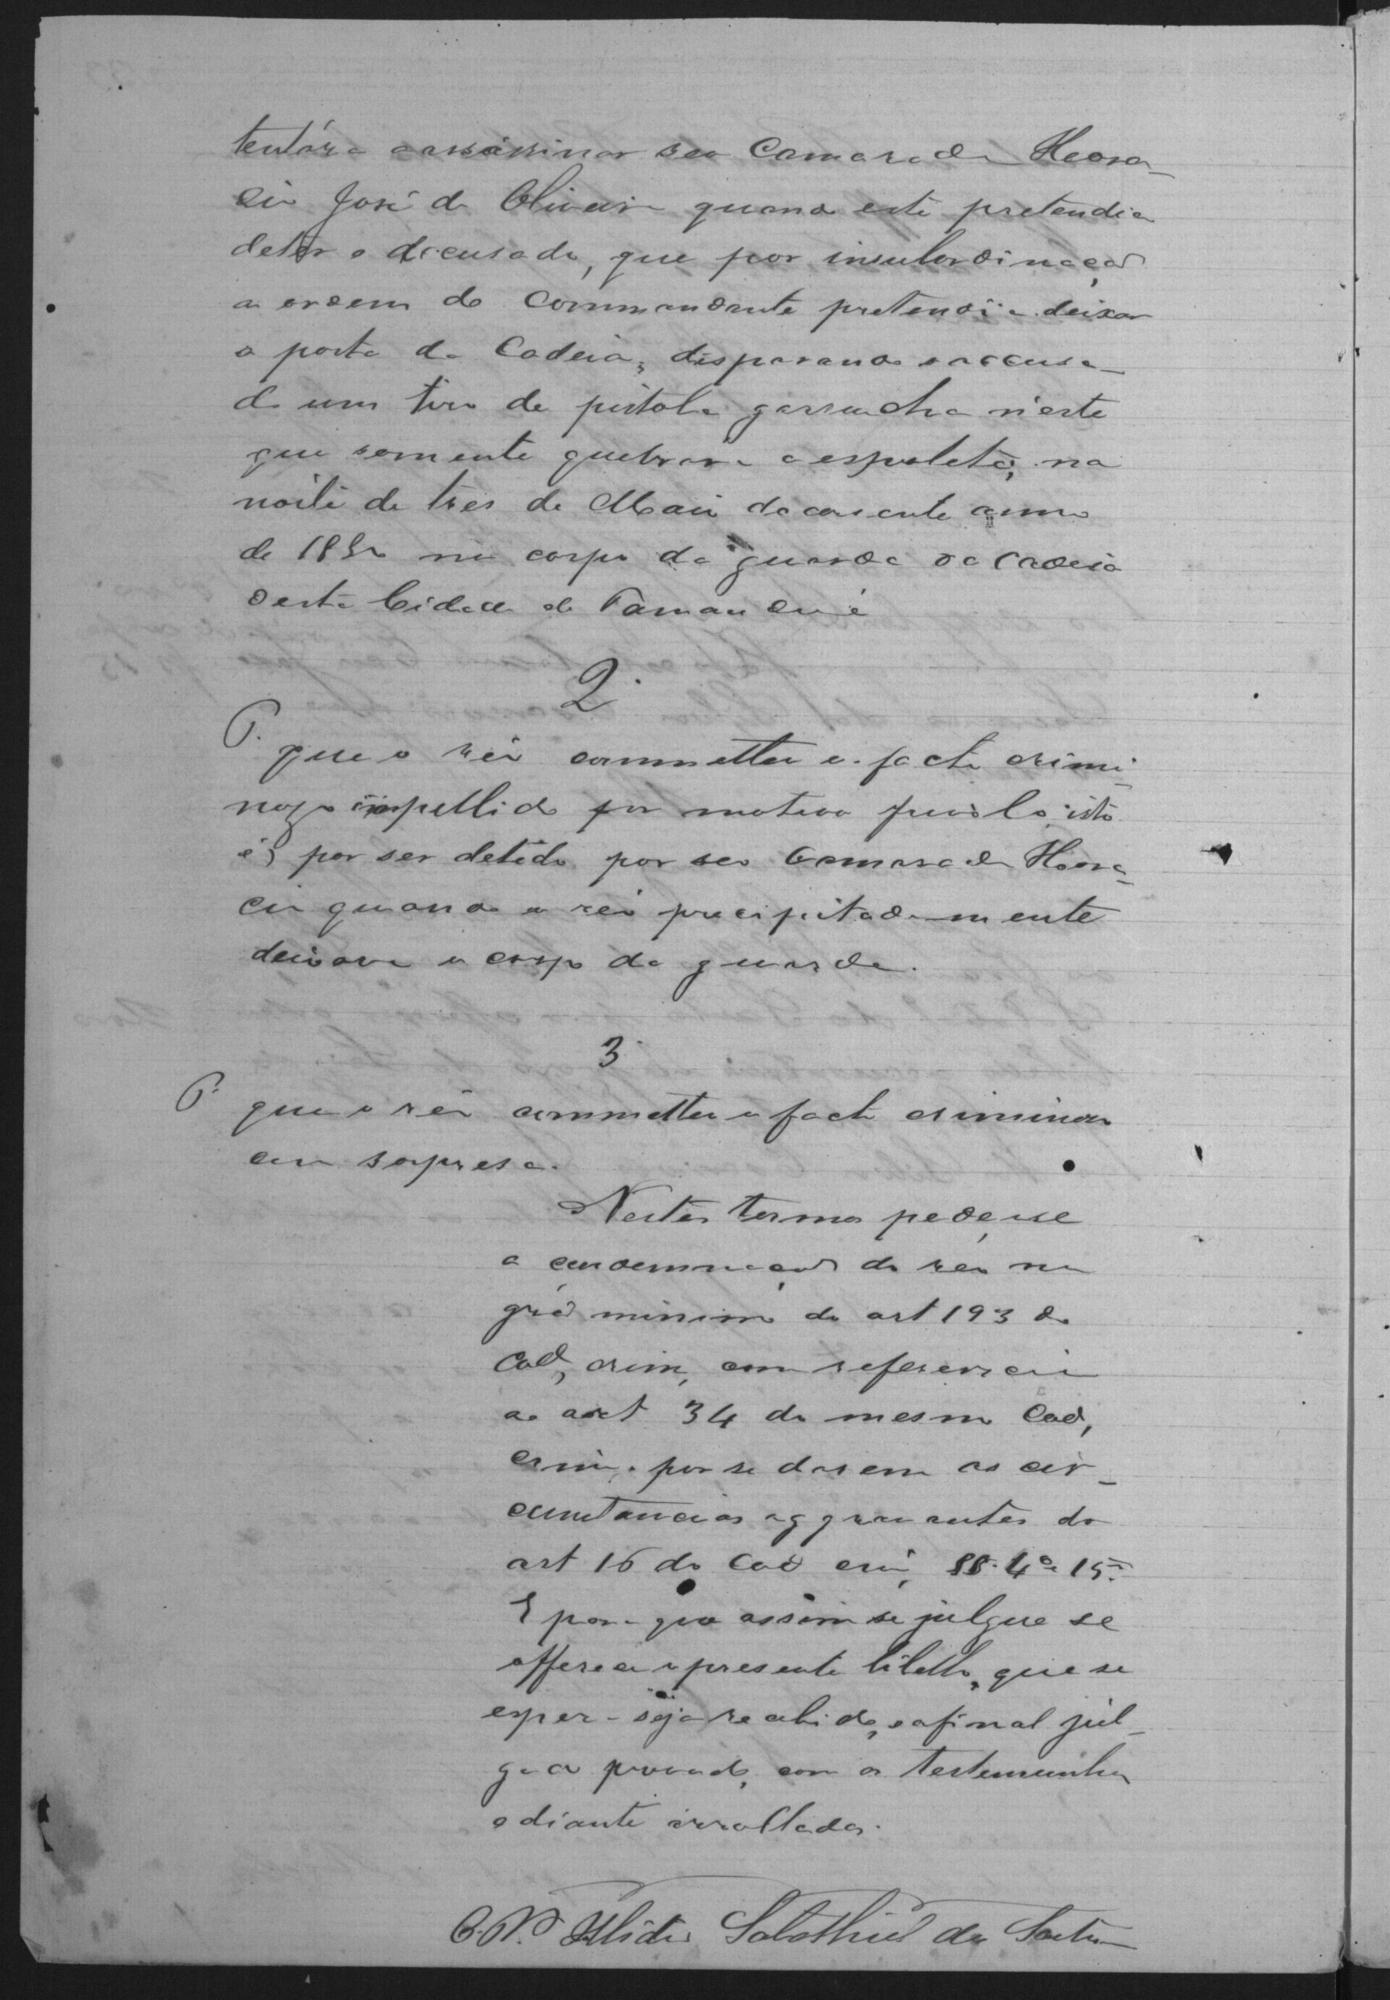 tentára assassinar seo Camarada Hora-
cio José de Oliveira quando este pretendia
deter o Accusado, que por insubordinação
a ordem do Commandante pretendia deixar
a porta da Cadeia, disparando o accusa-
do um tiro de pistola garrucha n'este
que somente quebrara a espoleta, na
noite de tres de Maio do corrente anno
de no corpo da guarda da Cadeia
desta Cidade de Tamandué
2.
P. que o réo commetteu o facto crimi-
nozo impellido por motivo frivolo, isto
é, por ser detido por seo Camarada Hora-
cio quando o réo precipitadamente
deixava o corpo da guarda.
3.
P. que o réo commetteu o facto criminoso
com sorpresa.
Nestes termos pede-se
a condemnação do réo no
gráo minimo do art 193 do
Cod, crim, com referencia
ao art 34 do mesmo Cod,
crim. por se darem as cir-
cunstancias aggravantes do
art 16 do Cod cri, §§. 4º e 15º.
E para que assim se julgue se
offerece o presente libello, que se
espera seja recebido, e afinal jul-
gado provado, com as testemunhas
adiante arrolladas.
O. P. Salathiel dos Santos